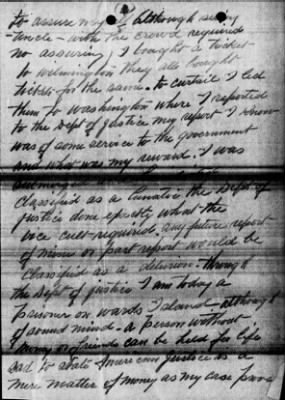 to assure my although
with the crowd required
no assuring, I bought a ticket
to wilmington they all bought
tickets for the same. to curtail I led
them to Washington where I reported
to the Dept of justice my report I know
was of some service to the government
and what was my reward. I was
classified as a lunatic the Dept of
justice done exactly what the
vice cult required, any future report
of mine or part report would be
classified as a delusion - through
the Dept of justice I am today a
prisoner on wards Island although
of sound mind - a person without
money or friends can be held for life
sad to state American justice is a
mere matter of money as my case prove